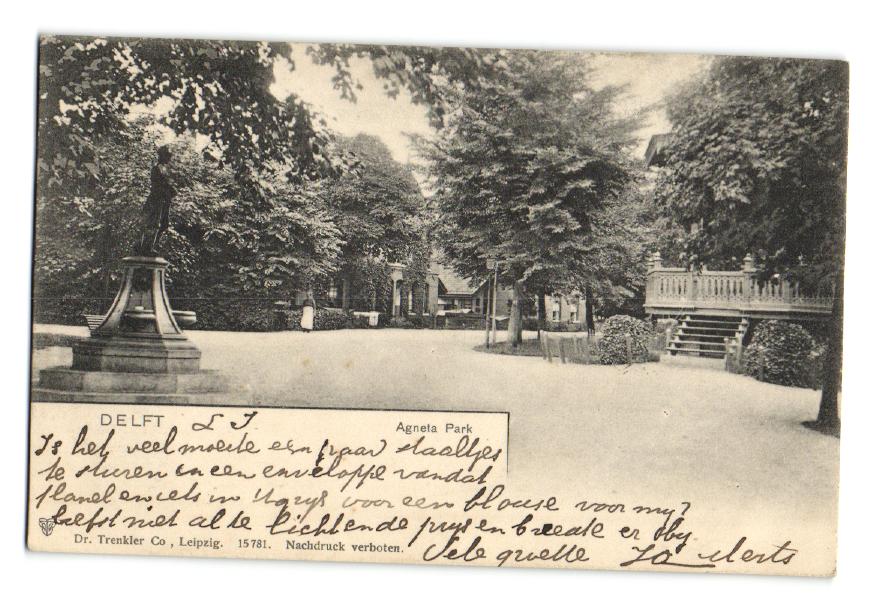 DELFT L J
Agneta Park
Is het veel moeite een paar staaltjes
te sturen in een enveloppe van dat
flanel en iets in 't grijs voor een blouse voor my?
Liefst niet al te lichte en de prys en breedte er by.
Vele groete Jo
Dr. Trenkler Co, Leipzig. 15781. Nachdruck verboten.